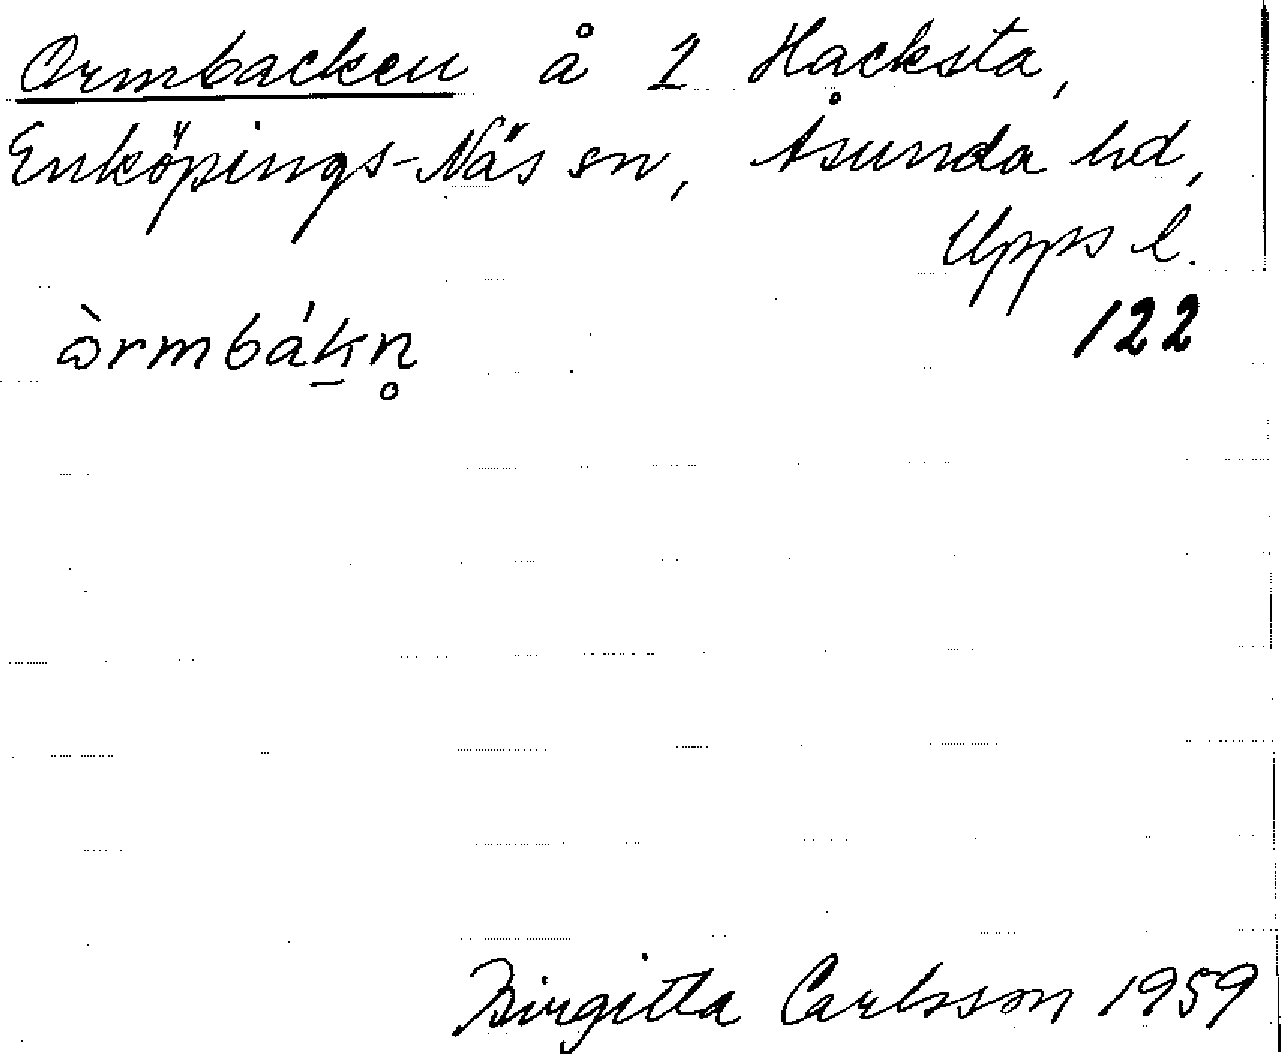 Ormbacken å 2 Hacksta,
Enköpings-Näs sn, Åsunda hd,
Upps l.
122
ɷ̀rmbák̠n̥
Birgitta Carlsson 1959